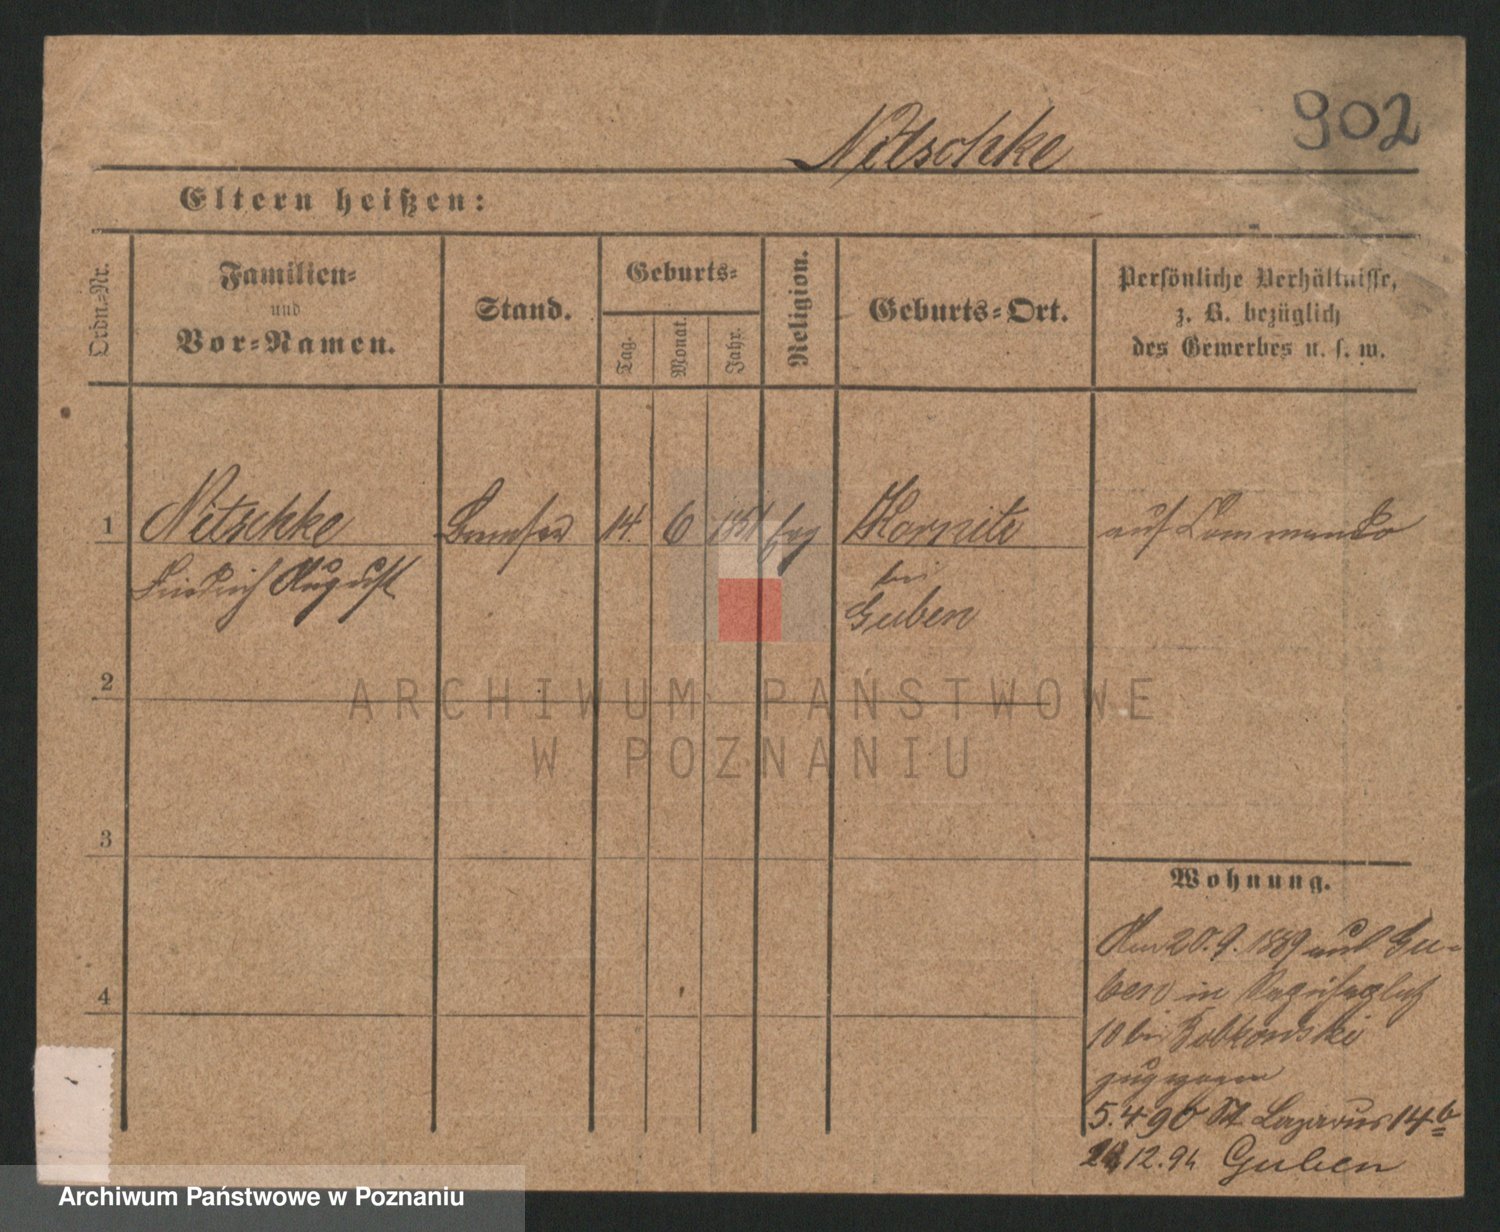 902
Nitschke
Eltern heißen:
Ordn.-Nr.
Familien-
und
Vor-Namen.
Stand.
Geburts-
Tag.
Monat.
Jahr.
Religion.
Geburts-Ort.
Persönliche Verhältnisse,
z. B. bezüglich
des Gewerbes u. s. w.
1
Nitschke
14.
6
evg
auf Commando
Friedrich August
bei
Guben
2
ARCHIWUM PAŃSTWOWE
W POZNANIU
3
Wohnung.
Am 20.9.1889 aus Gu-
ben in
10 bei
zugezogen
5.4.90 St. Lazarus 14b
12.94 Guben
4
Archiwum Państwowe w Poznaniu